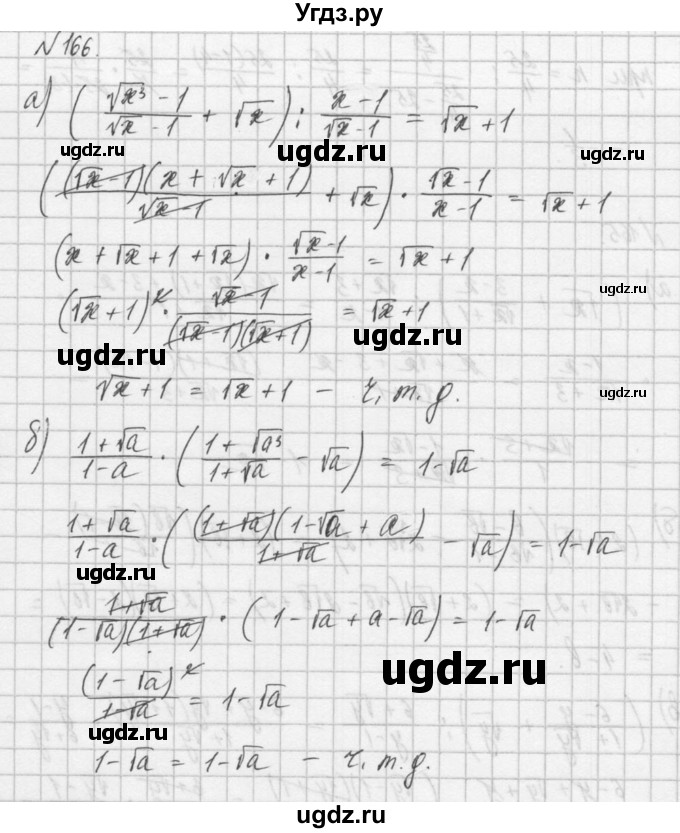 Угдз.ру
№166.
а) (√x³ - 1 / √x - 1 + √x) : x - 1 / √x - 1 = √x + 1
ugdz.ru ugdz.ru ugdz.ru
((√x - 1)(x + √x + 1) / √x - 1 + √x) · √x - 1 / x - 1 = √x + 1
(x + √x + 1 + √x) · √x - 1 / x - 1 = √x + 1
ugdz.ru
(√x + 1)² · √x - 1 / (√x - 1)(√x + 1) = √x + 1
ugdz.ru ugdz.ru
√x + 1 = √x + 1 - ч.т.д.
ugdz.ru
б) 1 + √a / 1 - a · (1 + √a³ / 1 + √a - √a) = 1 - √a
1 + √a / 1 - a · ((1 + √a)(1 - √a + a) / 1 + √a - √a) = 1 - √a
ugdz.ru
1 + √a / (1 - √a)(1 + √a) · (1 - √a + a - √a) = 1 - √a
ugdz.ru
(1 - √a)² / 1 - √a = 1 - √a
ugdz.ru
1 - √a = 1 - √a - ч.т.д.
ugdz.ru